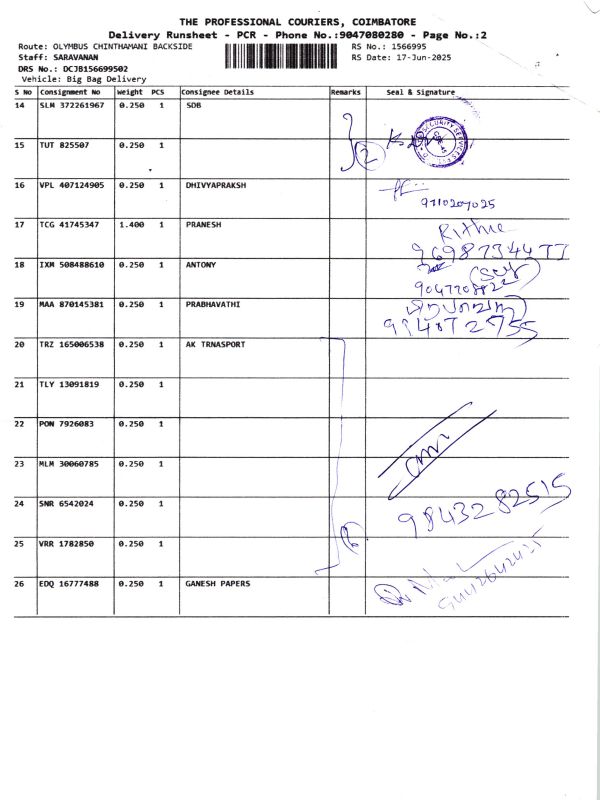 THE PROFESSIONAL COURIERS, COIMBATORE
Delivery Runsheet - PCR - Phone No.:9047080280 - Page No.:2
Route: OLYMBUS CHINTHAMANI BACKSIDE RS No.: 1566995
Staff: SARAVANAN RS Date: 17-Jun-2025
DRS No.: DCJB156699502
Vehicle: Big Bag Delivery
S No Consignment No Weight PCS Consignee Details Remarks Seal & Signature
14 SLM 372261967 0.250 1 SDB
15 TUT 825507 0.250 1
2
16 VPL 407124905 0.250 1 DHIVYAPRAKSH
9710207025
17 TCG 41745347 1.400 1 PRANESH Rithic
9698734477
18 IXM 508488610 0.250 1 ANTONY
19 MAA 870145381 0.250 1 PRABHAVATHI
20 TRZ 165006538 0.250 1 AK TRNASPORT
21 TLY 13091819 0.250 1
22 PON 7926083 0.250 1
23 MLM 30060785 0.250 1
24 SNR 6542024 0.250 1 9843282515
25 VRR 1782850 0.250 1
26 EDQ 16777488 0.250 1 GANESH PAPERS